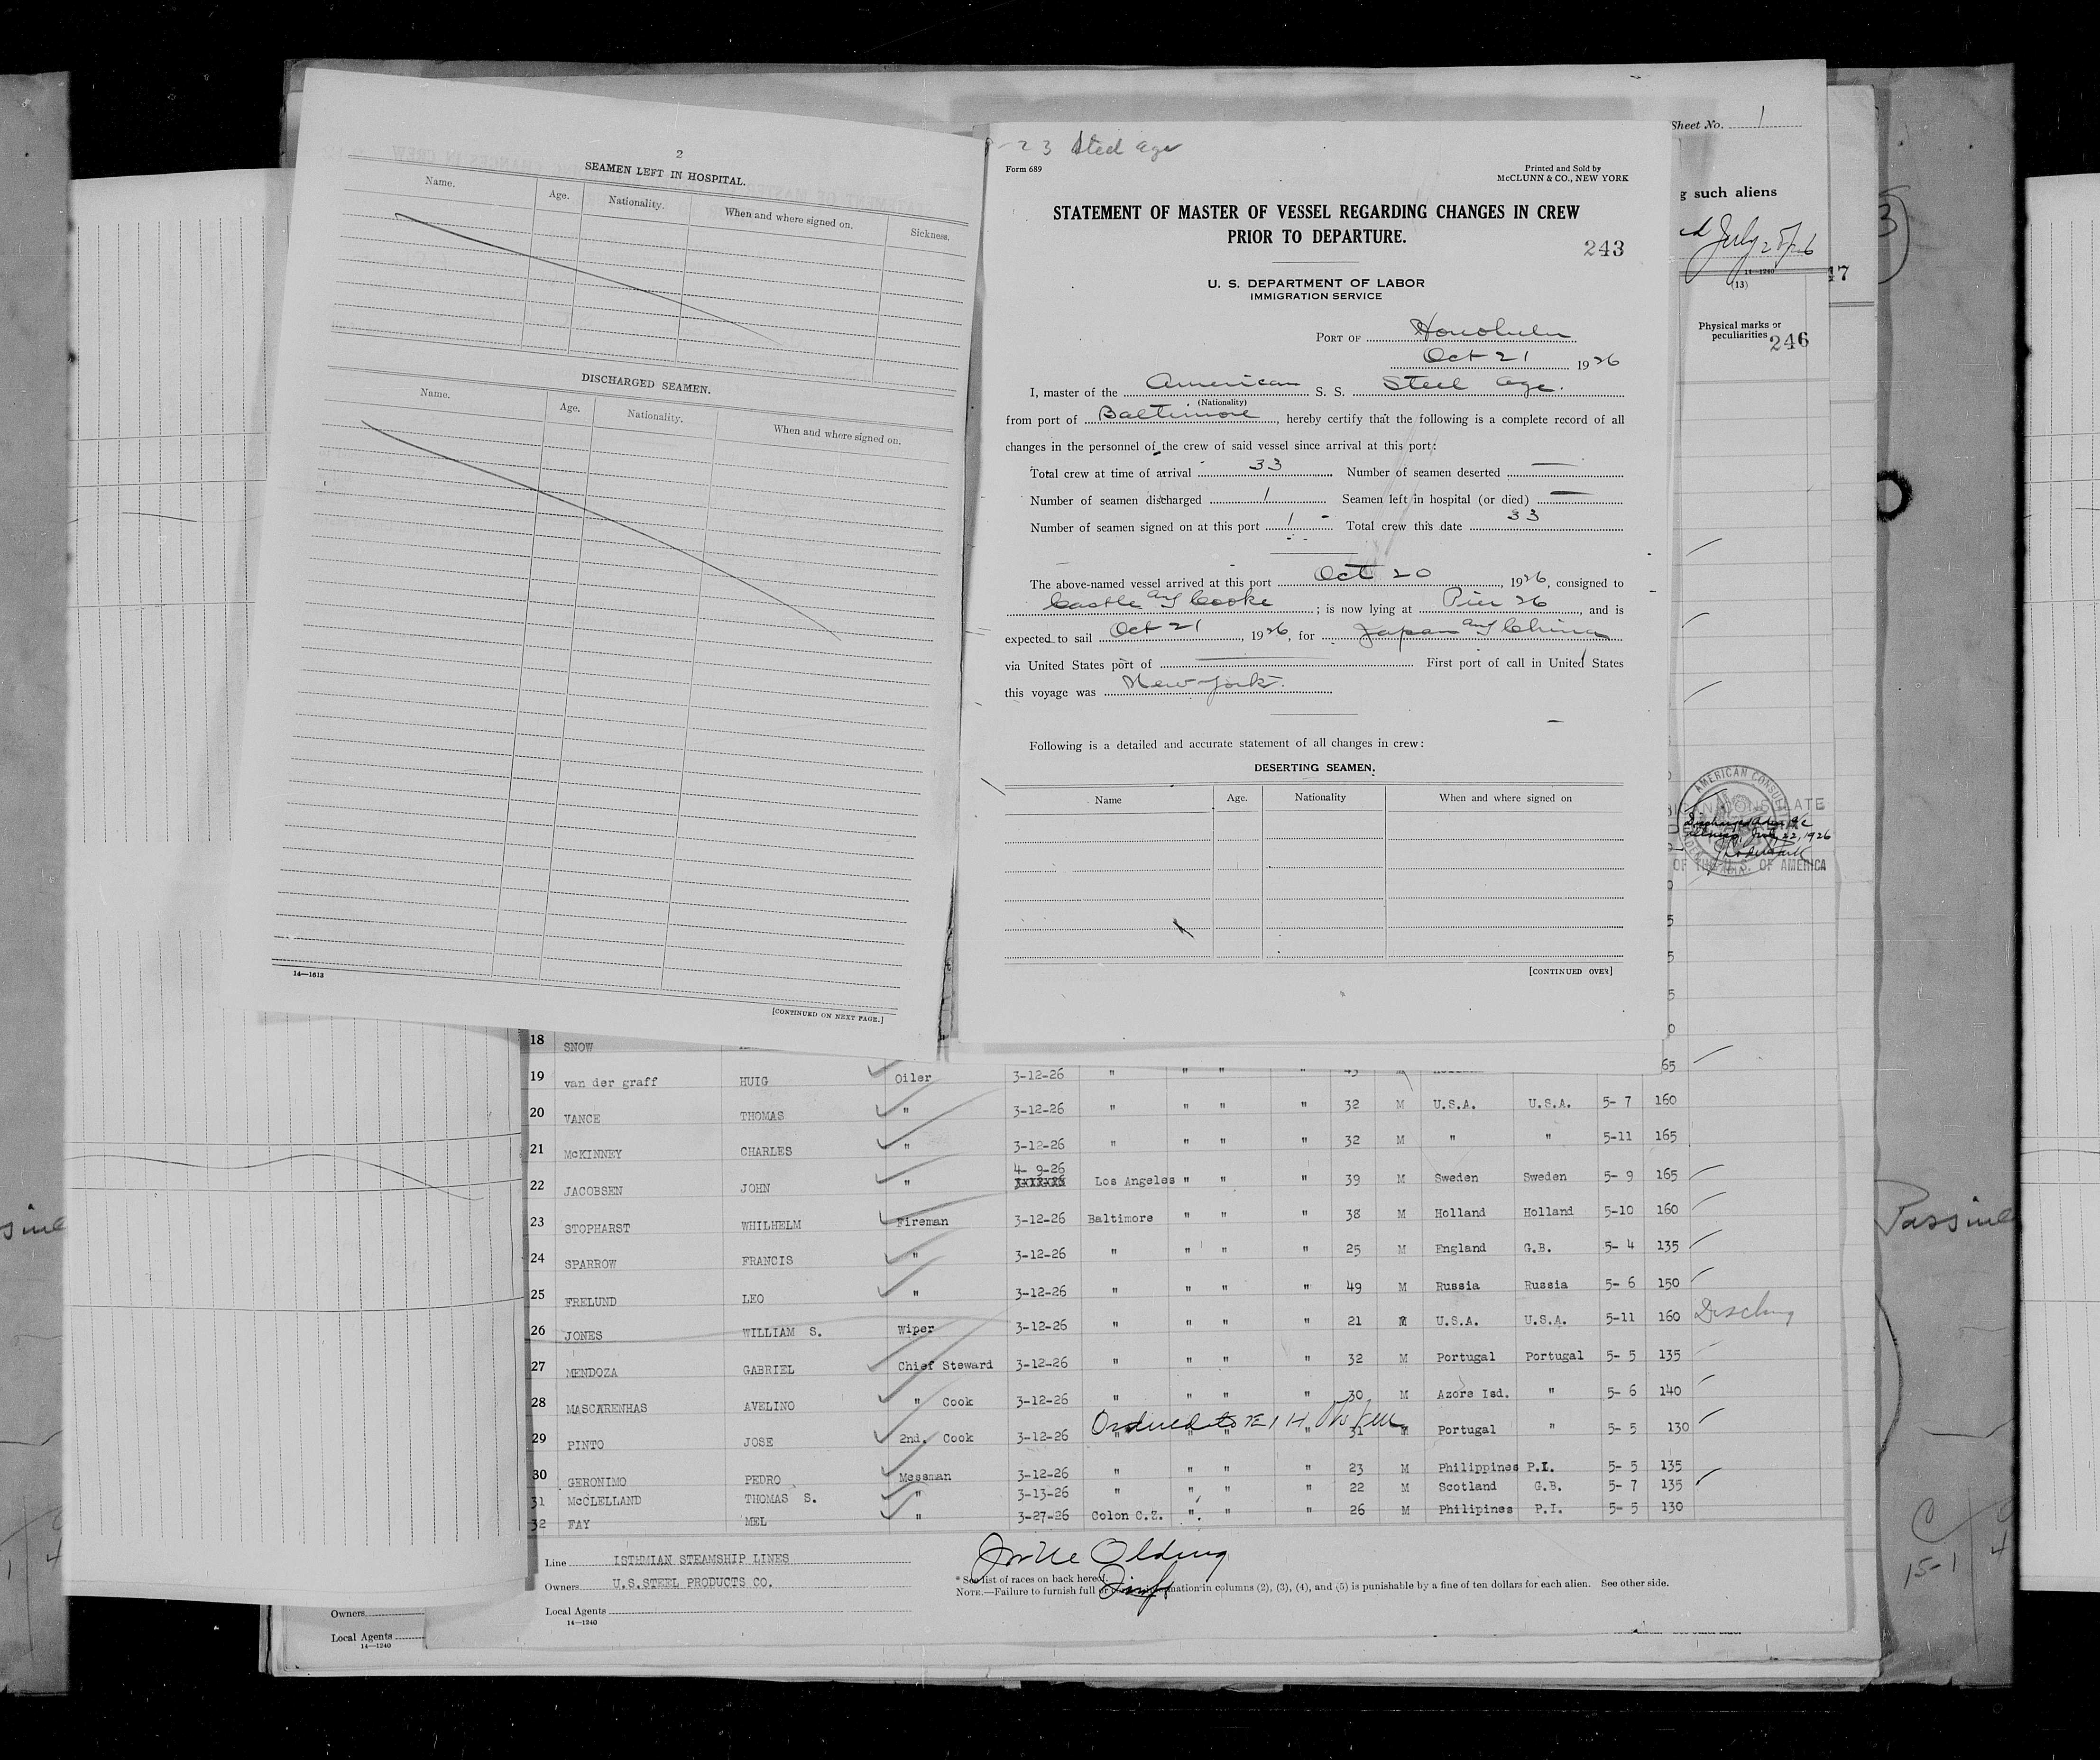 2
SEAMEN LEFT IN HOSPITAL.
Name. Age. Nationality. When and where signed on. Sickness.
DISCHARGED SEAMEN.
Name. Age. Nationality. When and where signed on.
14—1613
[CONTINUED ON NEXT PAGE.]
23 Steel Age
Form 689
Printed and Sold by
McCLUNN & CO., NEW YORK
STATEMENT OF MASTER OF VESSEL REGARDING CHANGES IN CREW
PRIOR TO DEPARTURE.
243
U. S. DEPARTMENT OF LABOR
IMMIGRATION SERVICE
PORT OF Honolulu
Oct 21 1926
I, master of the American S. S. Steel Age.
(Nationality)
from port of Baltimore, hereby certify that the following is a complete record of all
changes in the personnel of the crew of said vessel since arrival at this port:
Total crew at time of arrival 33 Number of seamen deserted —
Number of seamen discharged 1 Seamen left in hospital (or died) —
Number of seamen signed on at this port 1 Total crew this date 33
The above-named vessel arrived at this port Oct 20, 1926, consigned to
Castle and Cooke; is now lying at Pier 26, and is
expected to sail Oct 21, 1926, for Japan and China
via United States port of — First port of call in United States
this voyage was New York.
Following is a detailed and accurate statement of all changes in crew:
DESERTING SEAMEN.
Name Age. Nationality When and where signed on
[CONTINUED OVER]
Sheet No. 1
g such aliens
July 28/26
14—1240
(13)
47
Physical marks or
peculiarities
246
AMERICAN CONSUL
OF THE U. S. OF AMERICA
18 SNOW
19 van der graff HUIG Oiler 3-12-26 " " " " 65
20 VANCE THOMAS " 3-12-26 " " " " 32 M U.S.A. U.S.A. 5- 7 160
21 McKINNEY CHARLES " 3-12-26 " " " " 32 M " " 5-11 165
4- 9-26
22 JACOBSEN JOHN " Los Angeles " " " 39 M Sweden Sweden 5- 9 165
23 STOPHARST WHILHELM Fireman 3-12-26 Baltimore " " " 38 M Holland Holland 5-10 160
24 SPARROW FRANCIS " 3-12-26 " " " " 25 M England G.B. 5- 4 135
25 FRELUND LEO " 3-12-26 " " " " 49 M Russia Russia 5- 6 150
26 JONES WILLIAM S. Wiper 3-12-26 " " " " 21 M U.S.A. U.S.A. 5-11 160 Dischg
27 MENDOZA GABRIEL Chief Steward 3-12-26 " " " " 32 M Portugal Portugal 5- 5 135
28 MASCARENHAS AVELINO " Cook 3-12-26 " " " " 30 M Azore Isd. " 5- 6 140
29 PINTO JOSE 2nd. Cook 3-12-26 " " " " 31 M Portugal " 5- 5 130
30 GERONIMO PEDRO Messman 3-12-26 " " " " 23 M Philippines P.I. 5- 5 135
31 McCLELLAND THOMAS S. " 3-13-26 " " " " 22 M Scotland G.B. 5- 7 135
32 FAY MEL " 3-27-26 Colon C.Z. " " " 26 M Philipines P.I. 5- 5 130
Line ISTHMIAN STEAMSHIP LINES
Owners U.S.STEEL PRODUCTS CO.
Local Agents
14—1240
* See list of races on back hereof.
NOTE.—Failure to furnish full information in columns (2), (3), (4), and (5) is punishable by a fine of ten dollars for each alien. See other side.
Owners
Local Agents
14—1240
15-1